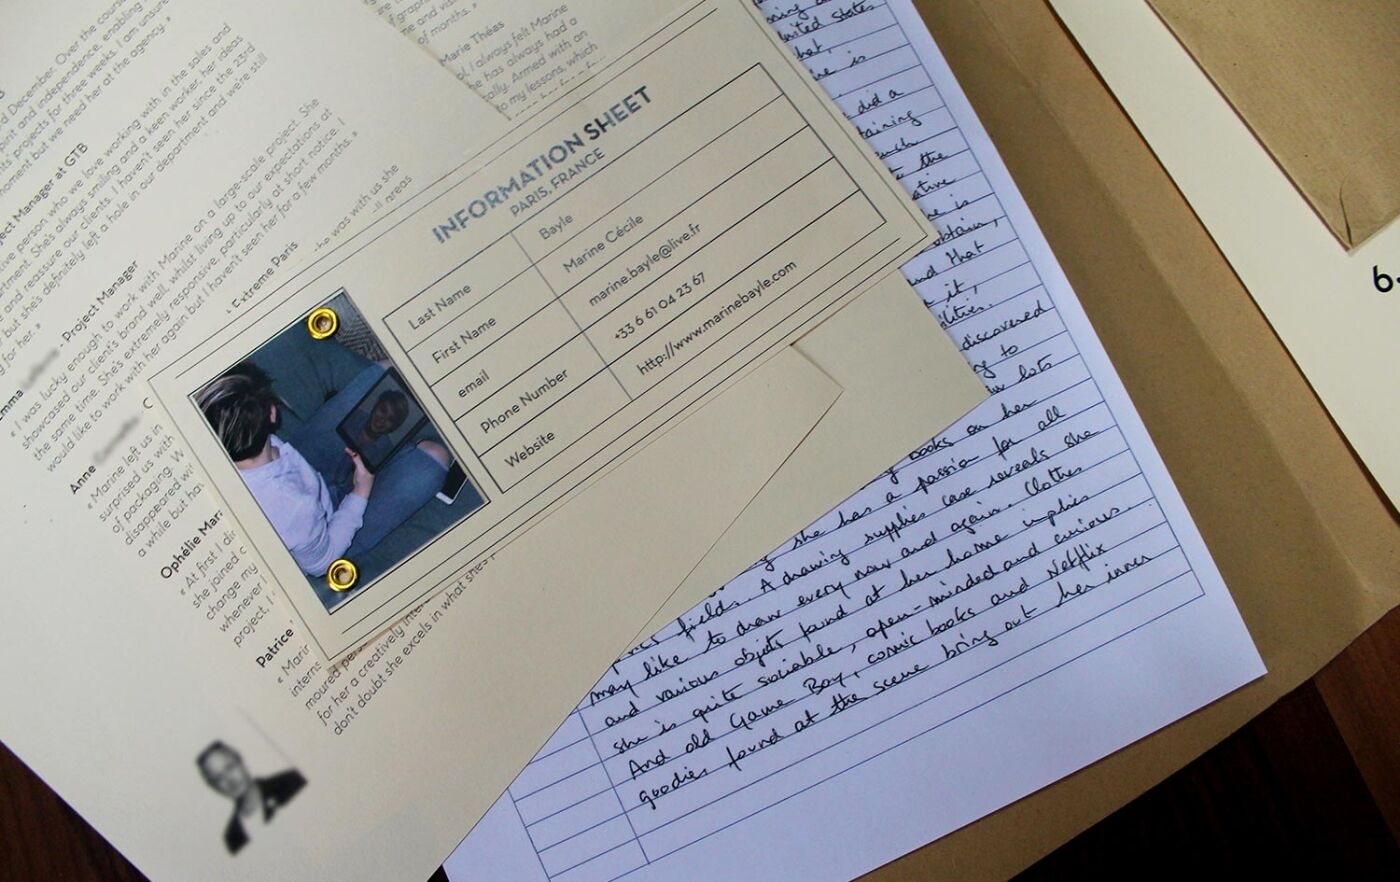 d December. Over the cours
pirit and independence, enabling
ts' projects for three weeks. I am sure
moment but we need her at the agency. »
ject Manager at GTB
tive person who we love working with in the sales and
artment. She's always smiling and a keen worker, her ideas
e and reassure our clients. I haven't seen her since the 23rd
but she's definitely left a hole in our department and we're still
g for her. »
Emma
- Project Manager
« I was lucky enough to work with Marine on a large-scale project. She
showcased our client's brand well, whilst living up to our expectations at
the same time. She's extremely responsive, particularly at short notice. I
would like to work with her again but I haven't seen her for a few months. »
Anne
C
Extreme Paris
« Marine left us in
he was with us she
surprised us with
all areas
of packaging. W
disappeared w
a while but ha
Ophélie Mari
« At first I di
she joined c
change my
whenever I
project, I
Patrice
« Marin
interns
moured pers
for her a creatively inte
don't doubt she excels in what she's
of graphi
me and vis
of months. »
Marie Théas
ol, I always felt Marine
he has always had a
ally. Armed with an
to my lessons, which
INFORMATION SHEET
PARIS, FRANCE
Last Name Bayle
First Name Marine Cécile
email marine.bayle@live.fr
Phone Number +33 6 61 04 23 67
Website http://www.marinebayle.com
United States
that,
is
did a
taining
the
ative
is
obtain,
and that
it,
ilities.
discovered
to
lots
books on her
she has a passion for all
fields. A drawing supplies case reveals she
may like to draw every now and again. Clothes
and various objects found at her home implies
she is quite sociable, open-minded and curious.
And old Game Boy, comic books and Netflix
goodies found at the scene bring out her inner
6.